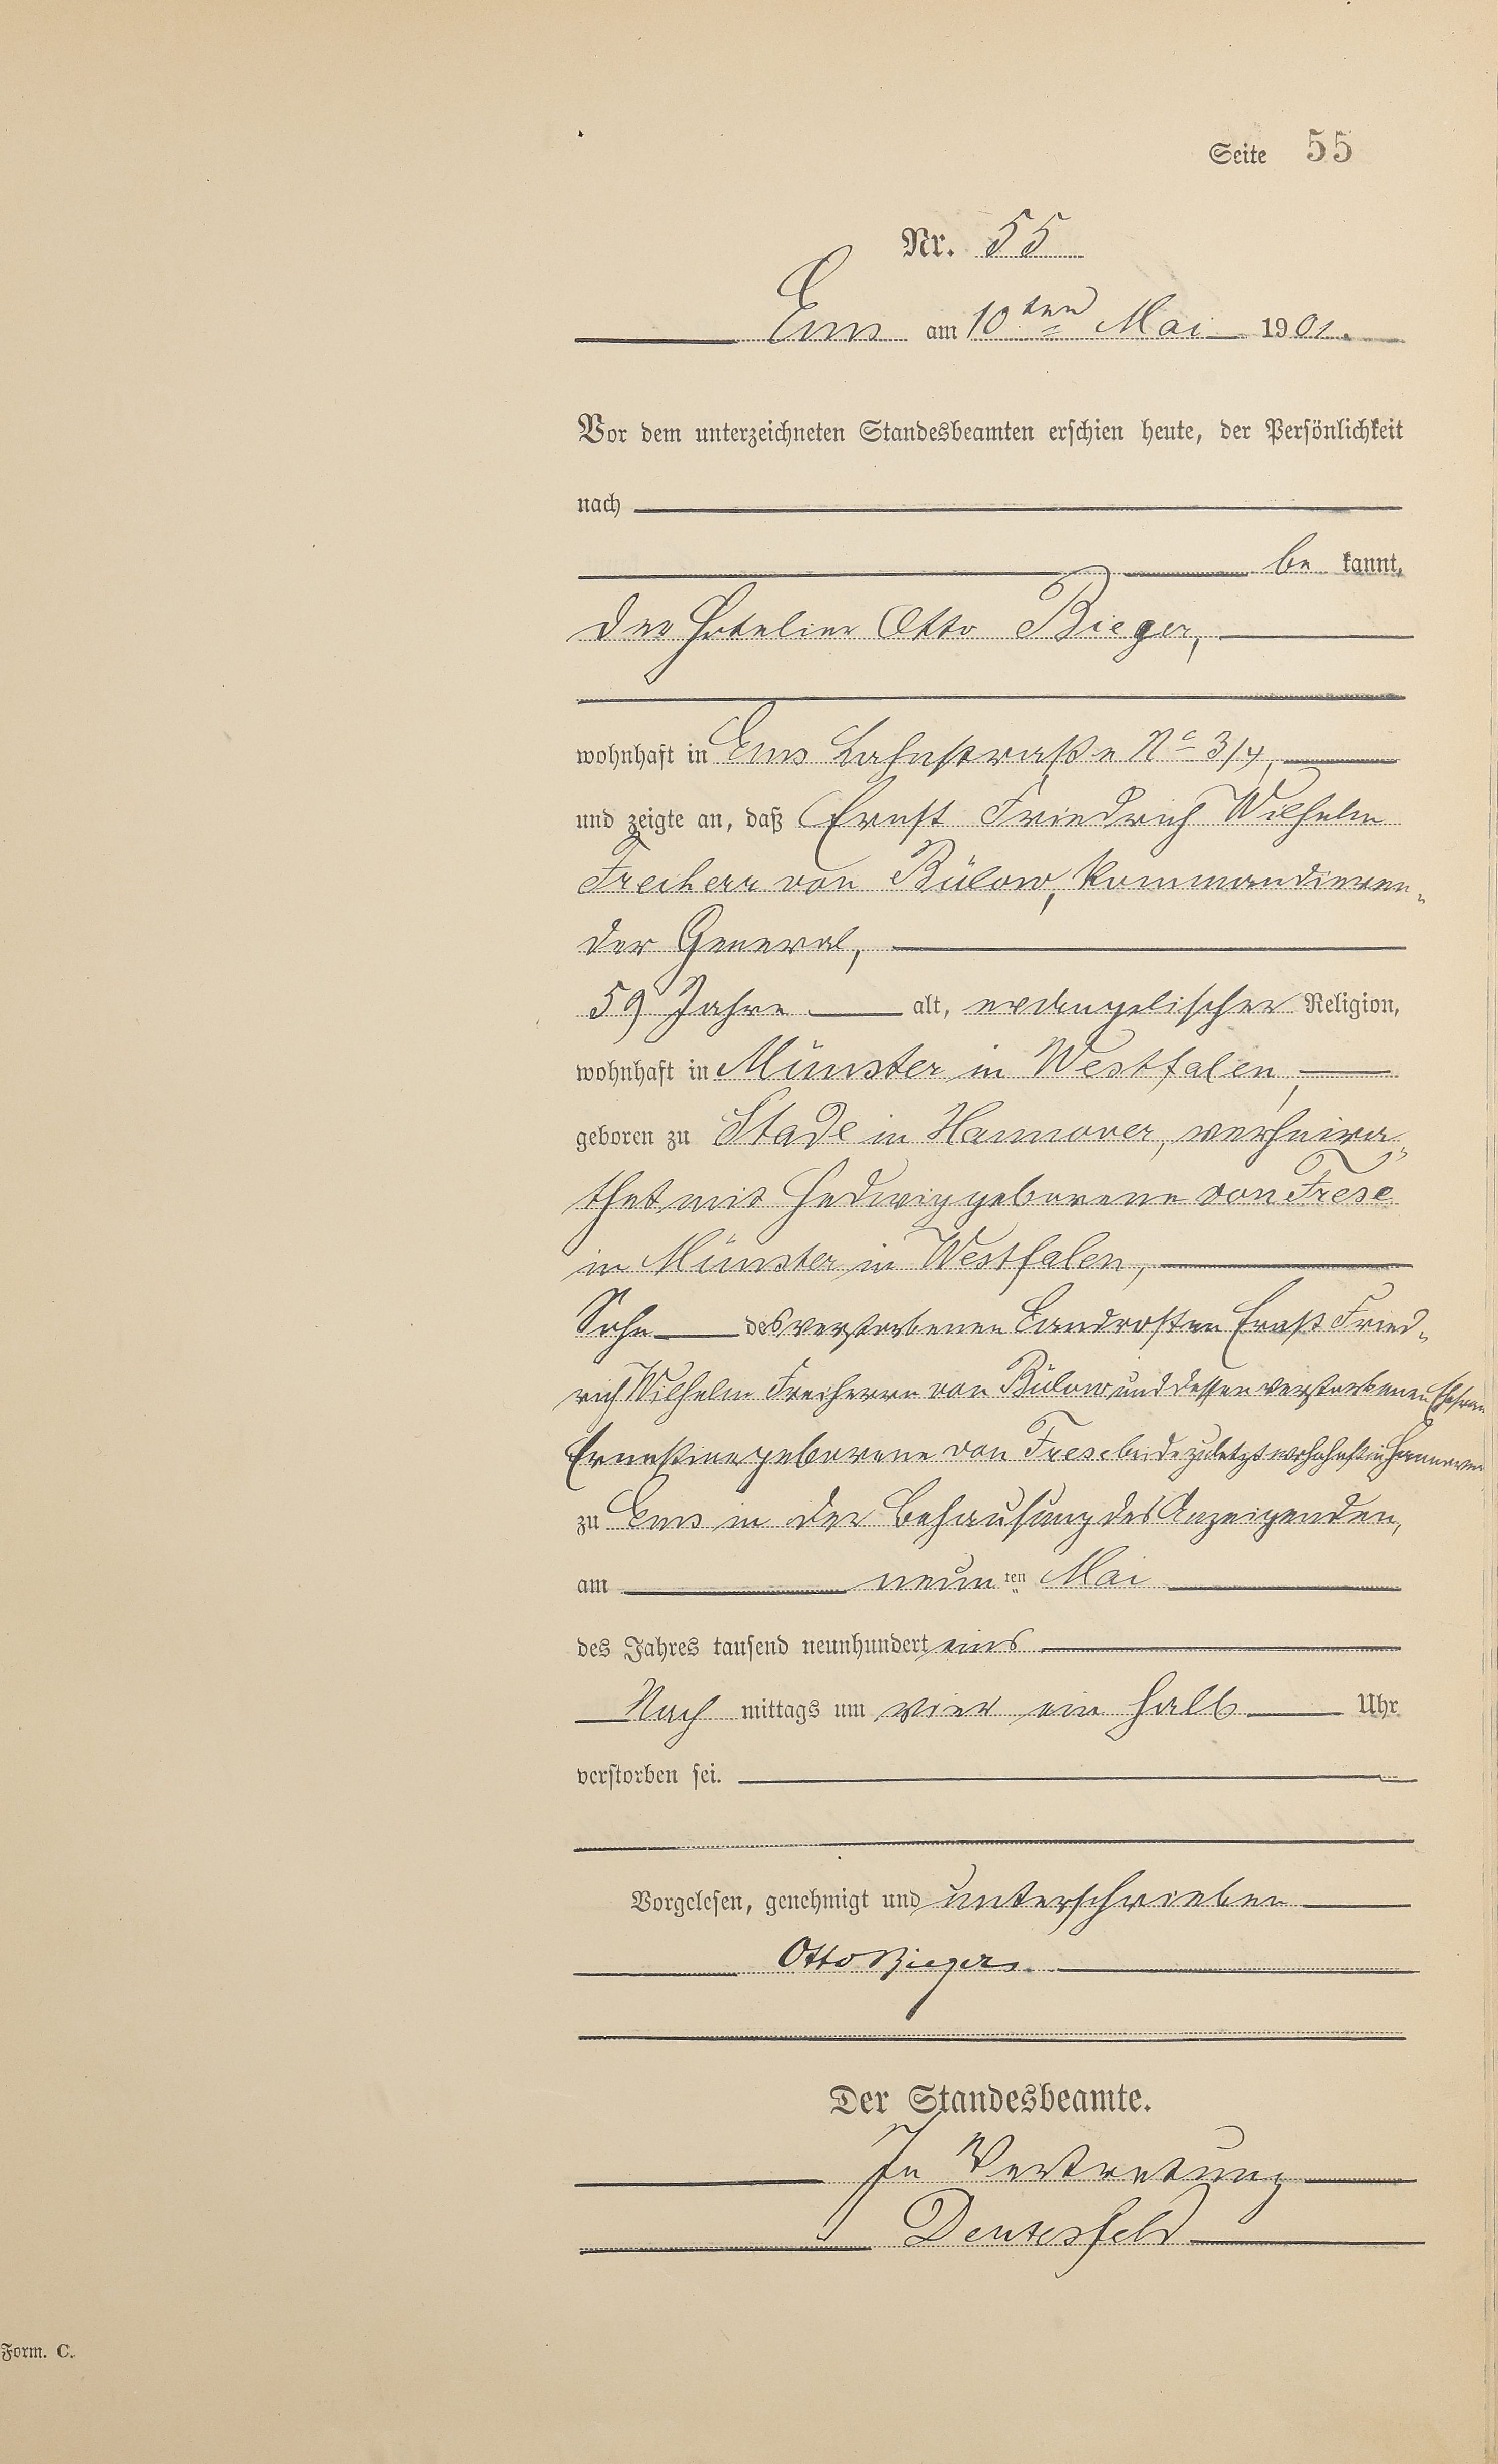 Seite 55
Nr. 55
Ems am 10ten Mai 1901.
Vor dem unterzeichneten Standesbeamten erschien heute, der Persönlichkeit
nach
be kannt,
der Hotelier Otto Bieger,
wohnhaft in Ems Lahnstraße No 3/4,
und zeigte an, daß Ernst Friedrich Wilhelm
Freiherr von Bülow, kommandieren-
der General,
59 Jahre alt, evangelischer Religion,
wohnhaft in Münster in Westfalen,
geboren zu Stade in Hannover, verheira-
thet mit Hedwig geborene von Frese
in Münster in Westfalen,
Sohn des verstorbenen Landrosten Ernst Fried-
rich Wilhelm Freiherrn von Bülow und dessen verstorbenen Ehefrau
Ernestine geborene von Frese beide zuletzt wohnhaft in Hannover
zu Ems in der Behausung des Anzeigenden,
am neun ten Mai
des Jahres tausend neunhundert eins
Nach mittags um vier ein halb Uhr
verstorben sei.
Vorgelesen, genehmigt und unterschrieben
Otto Bieger.
Der Standesbeamte.
In Vertretung
Deutesfeld
Form. C.